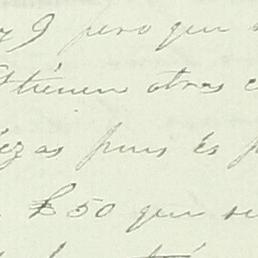 9 pero que
tienen otras
ezas pues és
£50 que se